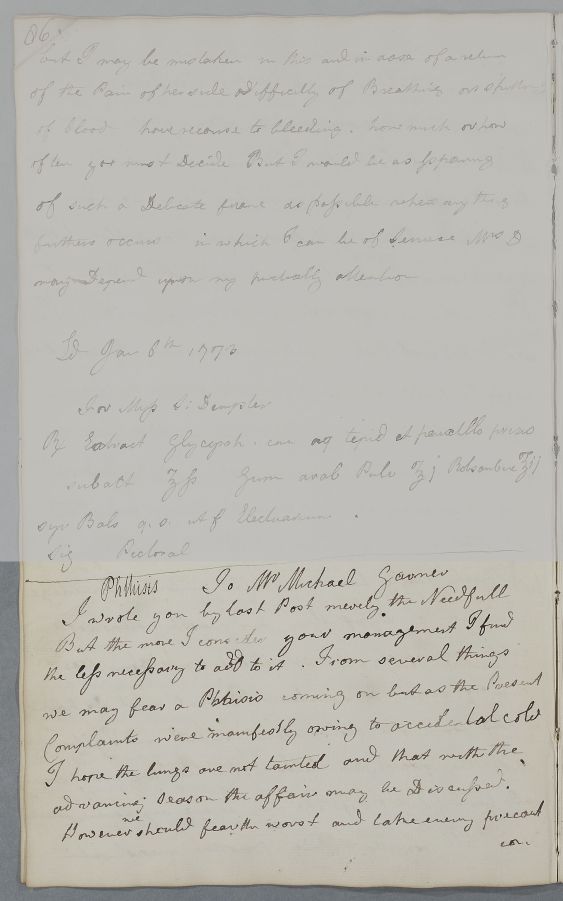 86
but I may be mistaken in this and in case of a return
of the Pain of her side difficulty of Breathing or
of blood have recourse to bleeding. how much or how
often you must Decide But I would be as sparing
of such a Delicate frame as possible when any thing
further occurs in which I can be of Service Mrs D
may Depend upon my attention
Ed Jan 6th 1773
For Miss Dempster
Rx Extract Glycyrrh. cum aq tepid et pauxillo
subact ʒss Gum arab Pulv ʒj ʒij
syr Bals q.s. ut f Electuarium.
Sig Pectoral
Phthisis To Mr Michael
I wrote you by last Post merely the Needfull
But the more I consider your management I find
the less necessary to add to it. From several things
we may fear a Phthisis coming on but as the Present
Complaints were manifestly owing to accidental cold
I hope the lungs are not tainted and that with the
advancing season the affair may be Discussed.
However we should fear the worst and take every precaut
ion.